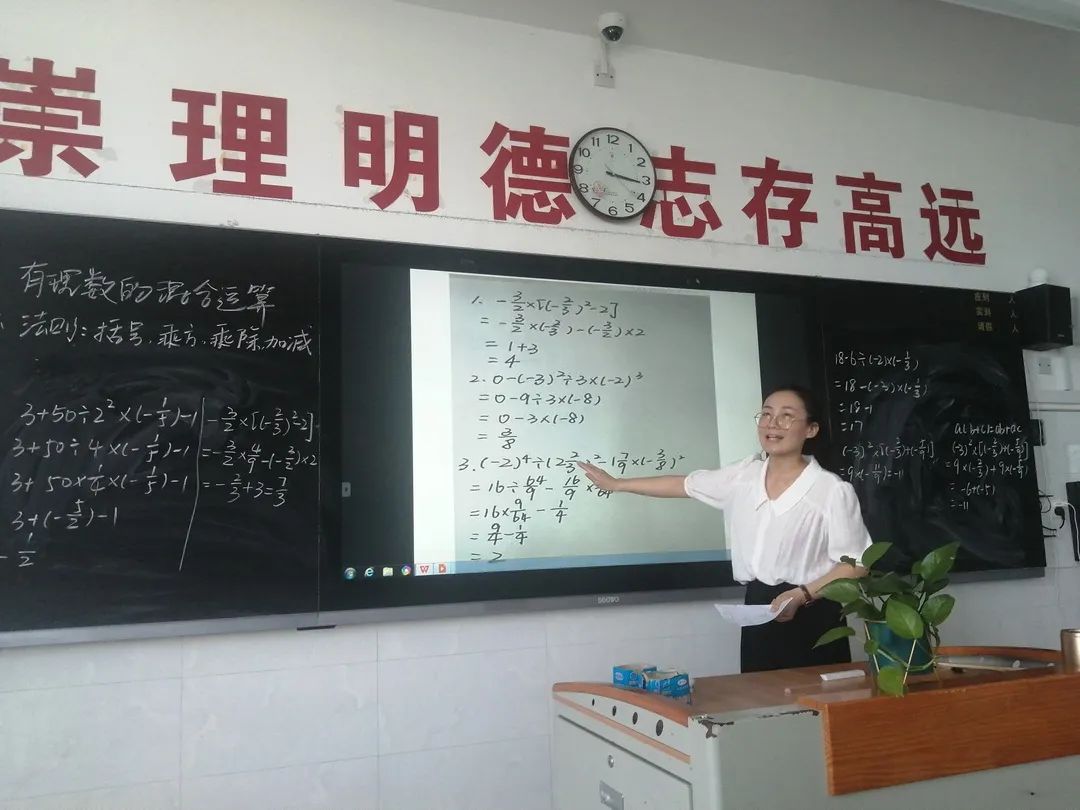 崇理明德 志存高远
有理数的混合运算
法则:括号,乘方,乘除,加减
3+50÷2²×(-1/5)-1
3+50÷4×(-1/5)-1
3+50×1/4×(-1/5)-1
3+(-5/2)-1
-1/2
-3/2×[(-2/3)²-2]
=-3/2×4/9-(-3/2)×2
=-2/3+3=7/3
1. -3/2×[(-2/3)²-2]
=-3/2×(-2/3)-(-3/2)×2
=1+3
=4
2. 0-(-3)²÷3×(-2)³
=0-9÷3×(-8)
=0-3×(-8)
=3/8
3. (-2)⁴÷(2 2/3)²-1 7/9×(-3/8)²
=16÷64/9-16/9×9/64
=16×9/64-1/4
=9/4-1/4
=2
应到 人
实到 人
请假 人
18-6÷(-2)×(-1/3)
=18-(-3)×(-1/3)
=18-1
=17
(-3)²×[(-2/3)+(-5/9)]
=9×(-11/9)=-11
a(b+c)=ab+ac
(-3)²×[(-2/3)+(-5/9)]
=9×(-2/3)+9×(-5/9)
=-6+(-5)
=-11
12
1
2
3
4
5
6
7
8
9
10
11
seewo